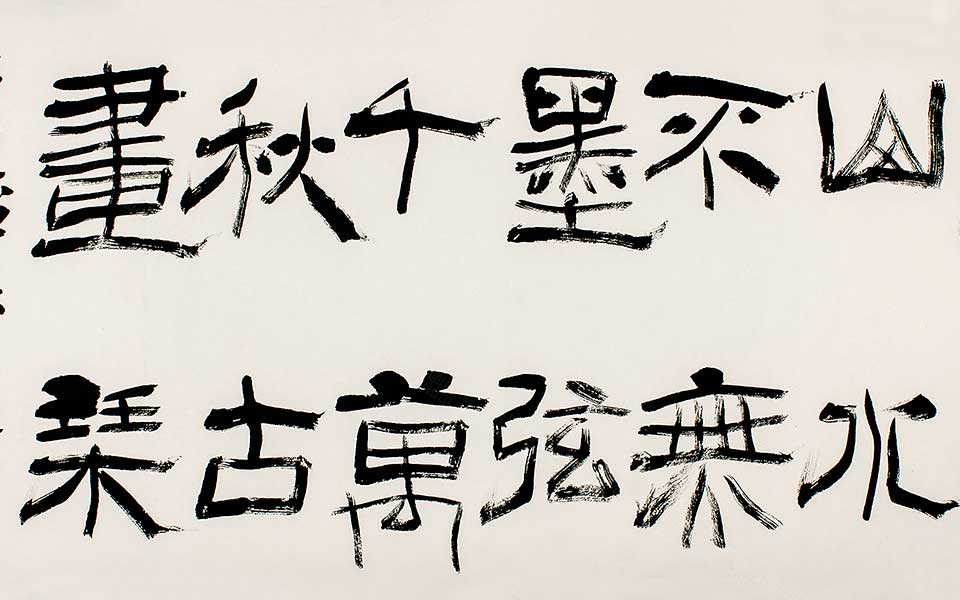 山不墨千秋畫
水無弦萬古琹